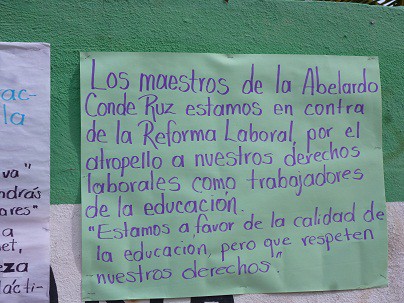 ac-
la
va"
ndrás
ares"
a
net,
eza
dácti-
Los maestros de la Abelardo
Conde Ruz estamos en contra
de la Reforma Laboral, por el
atropello a nuestros derechos
laborales como trabajadores
de la educación.
"Estamos a favor de la calidad de
la educación, pero que respeten
nuestros derechos."